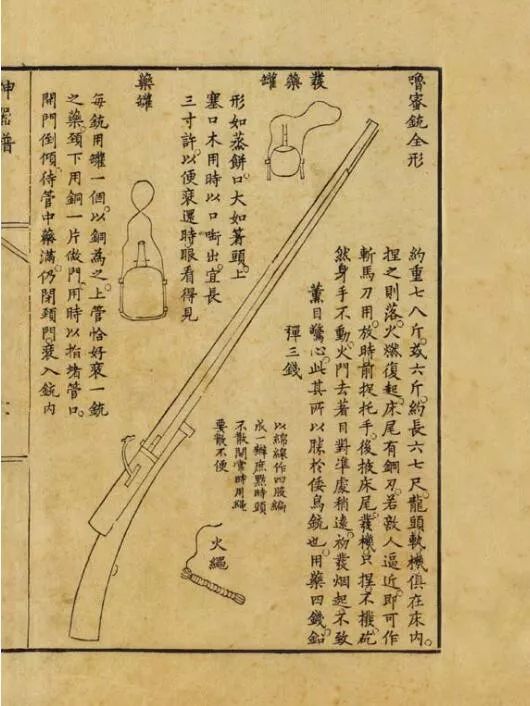 嚕蜜銃全形
約重七八斤。或六斤。約長六七尺。龍頭軌機俱在床内。
捏之則落。火燃復起。床尾有鋼刃。若敵人逼近。即可作
斬馬刀用。放時前捉托手。後掖床尾。發機只捏不撥。砣
然身手不動。火門去著目對準處稍遠。初發烟起。不致
薰目驚心。此其所以勝於倭鳥銃也。用藥四錢。鉛
彈三錢
發藥罐
形如蒸餅。口大如箸頭。上
塞口木。用時以口啣出。宜長
三寸許。以便裝還時眼看得見
火繩
以綿線作四股編
成一辮庶點時頭
不散開常時用繩
要散不便
藥罐
每銃用罐一個。以銅為之。上管恰好裝一銃
之藥。頸下用銅一片做門。用時以指堵管口。
開門倒傾。待管中藥滿。仍閉頸門。裝入銃内
神器譜